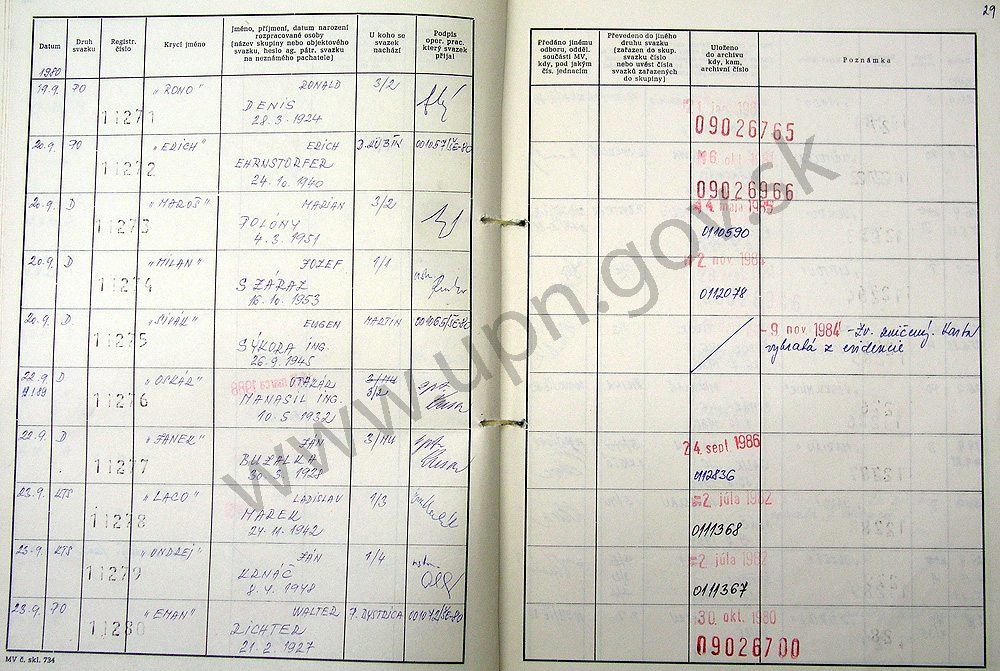 29
Datum
Druh svazku
Registr. číslo
Krycí jméno
Jméno, příjmení, datum narození rozpracované osoby (název skupiny nebo objektového svazku, heslo ag. pátr. svazku na neznámého pachatele)
U koho se svazek nachází
Podpis oper. prac. který svazek přijal
Předáno jinému odboru, odděl. součásti MV, kdy, pod jakým čís. jednacím
Převedeno do jiného druhu svazku (zařazen do skup. svazku číslo nebo uvést čísla svazků zařazených do skupiny)
Uloženo do archivu kdy, kam, archivní číslo
Poznámka
1980
19.9. PO 11271 "RONO" RONALD 3/2
DENIS
28.3.1924
09026765
20.9. PO 11272 "ERICH" ERICH
EHRNSTORFER
24.10.1940
09026966
20.9. D 11273 "MAROŠ" MARIAN 3/2
POLÓNY
4.3.1951
0110590
20.9. D 11274 "MILAN" JOZEF 1/1
SZÁRAZ
16.10.1953
2. nov 1984
0112078
20.9. D. 11275 EUGEN MARTIN 001065/ŠE-80
SÝKORA ING.
26.9.1945
- 9 nov 1984 - Zv. zničený. Karta
vybratá z evidencie
22.9. D 11276 "OSKÁR" OTAKÁR
MANASIL ING.
10.5.1932
22.9. D 11277 "JANEK" JÁN
BUZALKA
1928
24. sept. 1986
0112836
23.9. KTS 11278 "LACO" LADISLAV 1/3
MAREK
24.11.1942
2. júla 1982
0111368
23.9. KTS 11279 "ONDREJ" JÁN 1/4
KRNÁČ
8.4.1948
2. júla
0111367
23.9. PO 11280 "EMAN" WALTER B. BYSTRICA 001072/ŠE-80
RICHTER
21.2.1927
30. okt. 1980
09026700
MV č. skl. 734
www.upn.gov.sk